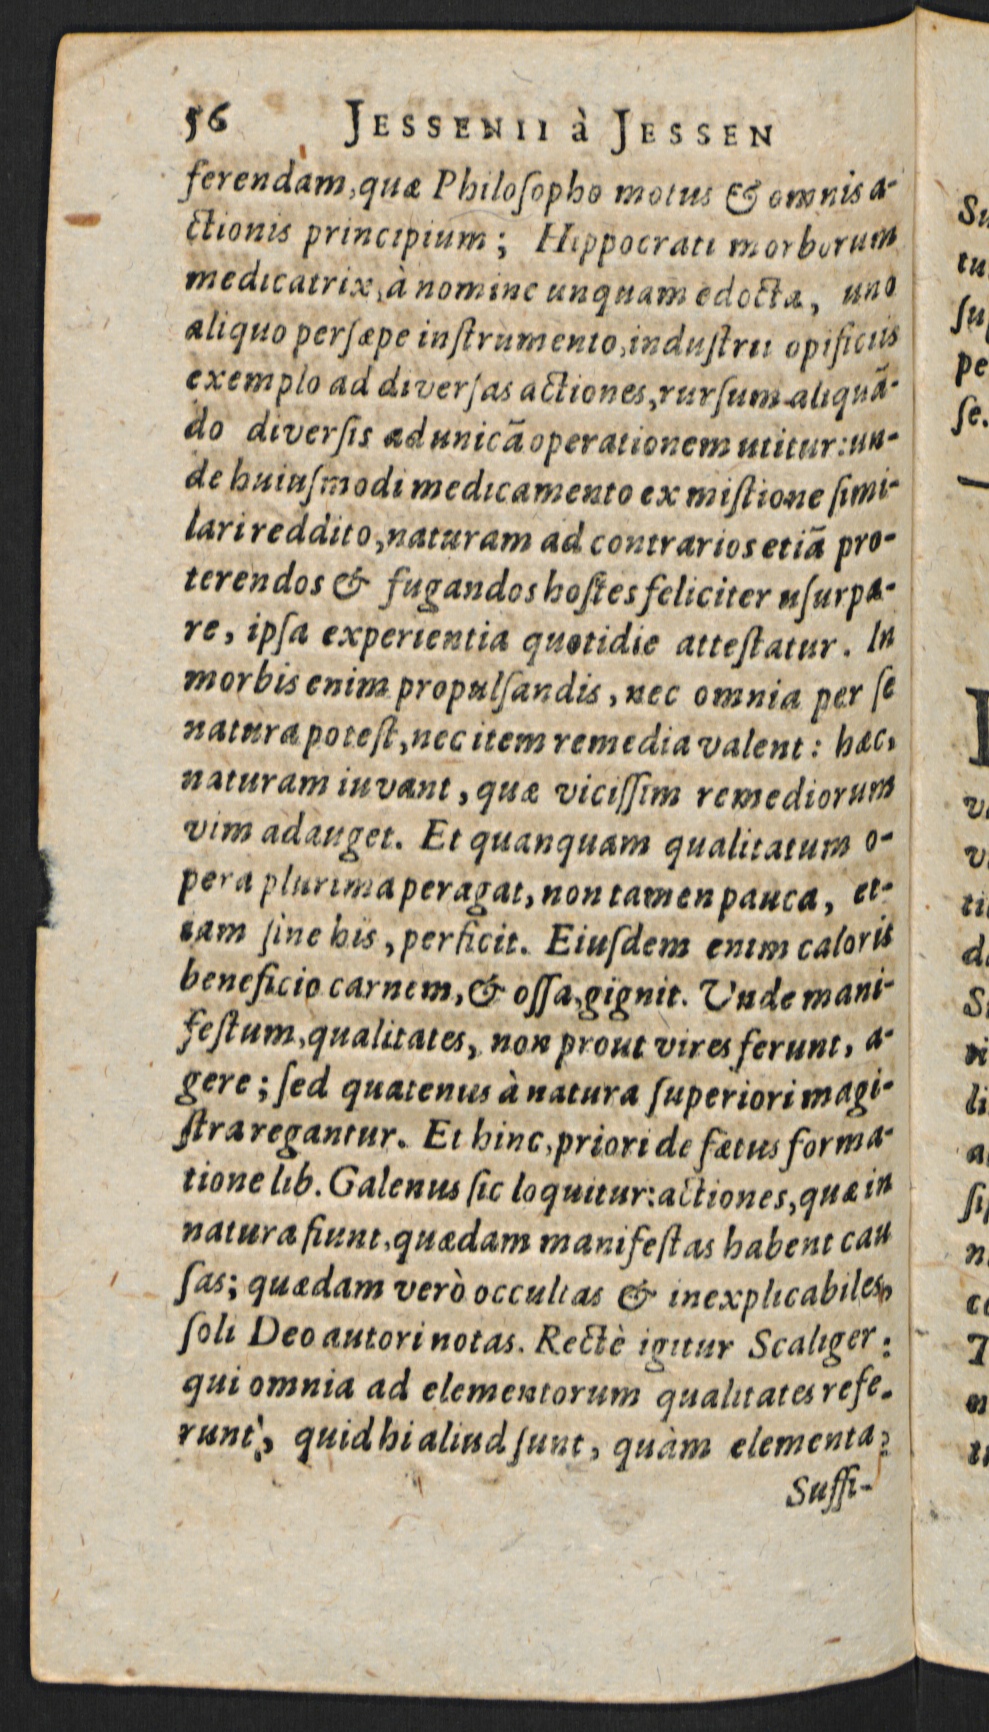 56 JESSENII à JESSEN
ferendam, quæ Philoſopho motus & omnis a-
ctionis principium; Hippocrati morborum
medicatrix, à nomine unquam edocta, uno
aliquo perſæpe inſtrumento, induſtrii opificiis
exemplo ad diverſas actiones, rurſum aliquã-
do diverſis ad unicã operationem utitur: un-
de huiuſmodi medicamento ex miſtione ſimi-
lari reddito, naturam ad contrarios etiã pro-
terendos & fugandos hoſtes feliciter uſurpa-
re, ipſa experientia quotidie atteſtatur. In
morbis enim propulſandis, nec omnia per ſe
natura poteſt, nec item remedia valent: hæc,
naturam iuvant, quæ viciſſim remediorum
vim adauget. Et quanquam qualitatum o-
pera plurima peragat, non tamen pauca, et-
iam ſine his, perficit. Eiuſdem enim caloris
beneficio carnem, & oſſa, gignit. Unde mani-
feſtum, qualitates, non prout vires ferunt, a-
gere; ſed quatenus à natura ſuperiori magi-
ſtra regantur. Et hinc, priori de fætus forma-
tione lib. Galenus ſic loquitur: actiones, quæ in
natura fiunt, quædam manifeſtas habent cau
ſas; quædam verò occultas & inexplicabiles,
ſoli Deo autori notas. Rectè igitur Scaliger:
qui omnia ad elementorum qualitates refe-
runt, quid hi aliud ſunt, quàm elementa?
Suffi-
Su
tu
ſup
pe
ſe.